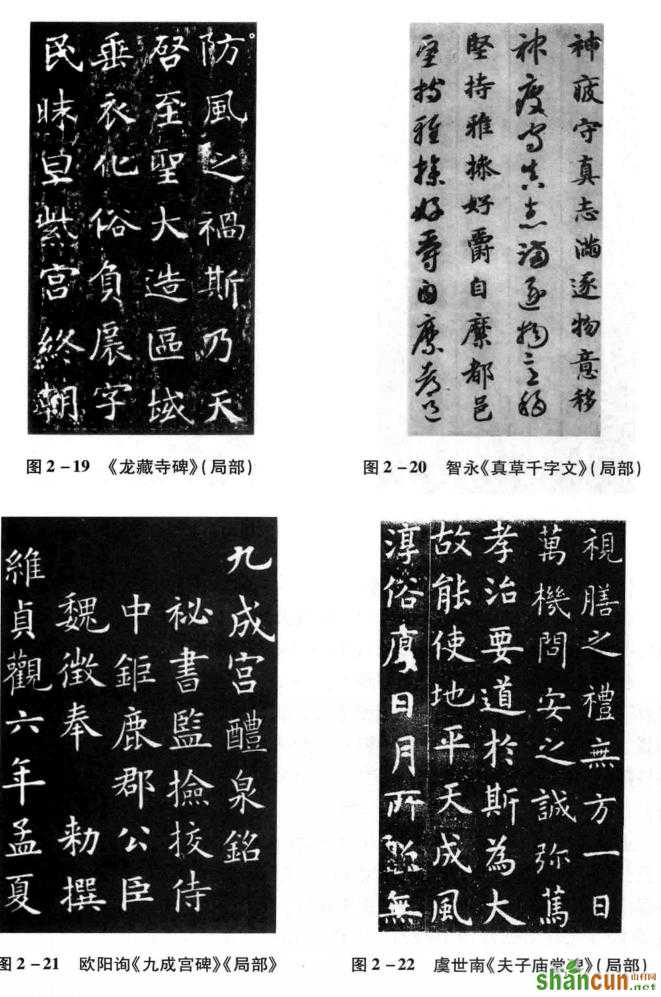 防風之禍斯乃天
啓至聖大造區域
垂衣化俗負扆字
民昧旦紫宮終朝
图2-19 《龙藏寺碑》(局部)
神疲守真志滿逐物意移
神疲守真志滿逐物意移
堅持雅操好爵自縻都邑
堅持雅操好爵自縻都邑
图2-20 智永《真草千字文》(局部)
九成宮醴泉銘
祕書監撿挍侍
中鉅鹿郡公臣
魏徵奉 勑撰
維貞觀六年孟夏
图2-21 欧阳询《九成宫碑》《局部》
視膳之禮無方一日
萬機問安之誠弥萬
孝治要道於斯為大
故能使地平天成風
淳俗厚日月所無
图2-22 虞世南《夫子庙堂碑》(局部)
shancun
山村网
.net